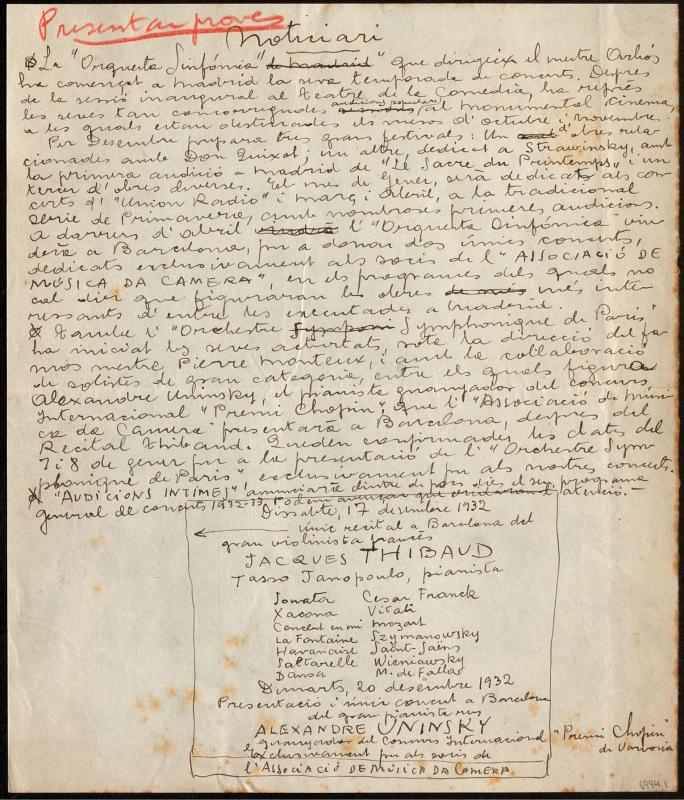 Presentar proves
Noticiari
La "Orquesta Sinfónica" de Madrid" que dirigeix el mestre Arbós
ha començat a Madrid la seva temporada de concerts. Despres
de la sessió inaugural al Teatre de la Comedia, ha repres
les seves tan concorregudes audicions populars, al Monumental Cinema,
a les quals estan destinades els mesos d'octubre i novembre.
Per Desembre prepara tres grans festivals: Un d'obres rela-
cionades amb Don Quixot; un altre, dedicat a Strawinsky, amb
la primera audició a Madrid de "Le Sacre du Printemps, i un
tercer d'obres diverses. El mes de Gener, serà dedicat als con-
certs d'"Union Radio" i març i abril, a la tradicional
serie de Primavera, amb nombroses primeres audicions.
A darrers d'abril vindrà l'"Orquesta Sinfónica" vin-
drà a Barcelona, per a donar dos únics concerts,
dedicats exclusivament als socis de l'"ASSOCIACIÓ DE
MÚSICA DA CAMERA", en els programes dels quals no
cal dir que figuraran les obres de més més inte-
ressants d'entre les executades a Madrid.
També l'"Orchestre Symphoni Symphonique de Paris"
ha iniciat les seves activitats, sota la direcció del fa-
mós mestre Pierre Monteux, i amb la col·laboració
de solistes de gran categoria, entre els quals figura
Alexandre Uninsky, el pianista guanyador del concurs
Internacional "Premi Chopin", que l'"Associació de Músi-
ca da Camera" presentarà a Barcelona, despres del
Recital Thibaud. Queden confirmades les dates del
7 i 8 de gener per a la presentació de l'"Orchestre Sym-
phonique de Paris" exclusivament per als nostres concerts.
"AUDICIONS INTIMES", anunciarà dintre de pocs dies el seu programa
general de concerts 1932-33. Podem avançar que atenció.-
Dissabte, 17 desembre 1932
únic recital a Barcelona del
gran violinista francès
JACQUES THIBAUD
Tasso Janopoulo, pianista
Sonata Cesar Franck
Xacona Vitali
Concert en mi Mozart
La Fontaine Szymanowsky
Havanaise Saint-Saëns
Saltarelle Wieniawsky
Dansa M. de Falla
Dimarts, 20 desembre 1932
Presentació i únic concert a Barcelona
del gran pianista rus
ALEXANDRE UNINSKY
guanyador del Concurs Internacional "Premi Chopin"
de Varsovia
Exclusivament per als socis de
l'ASSOCIACIÓ DE MÚSICA DA CAMERA